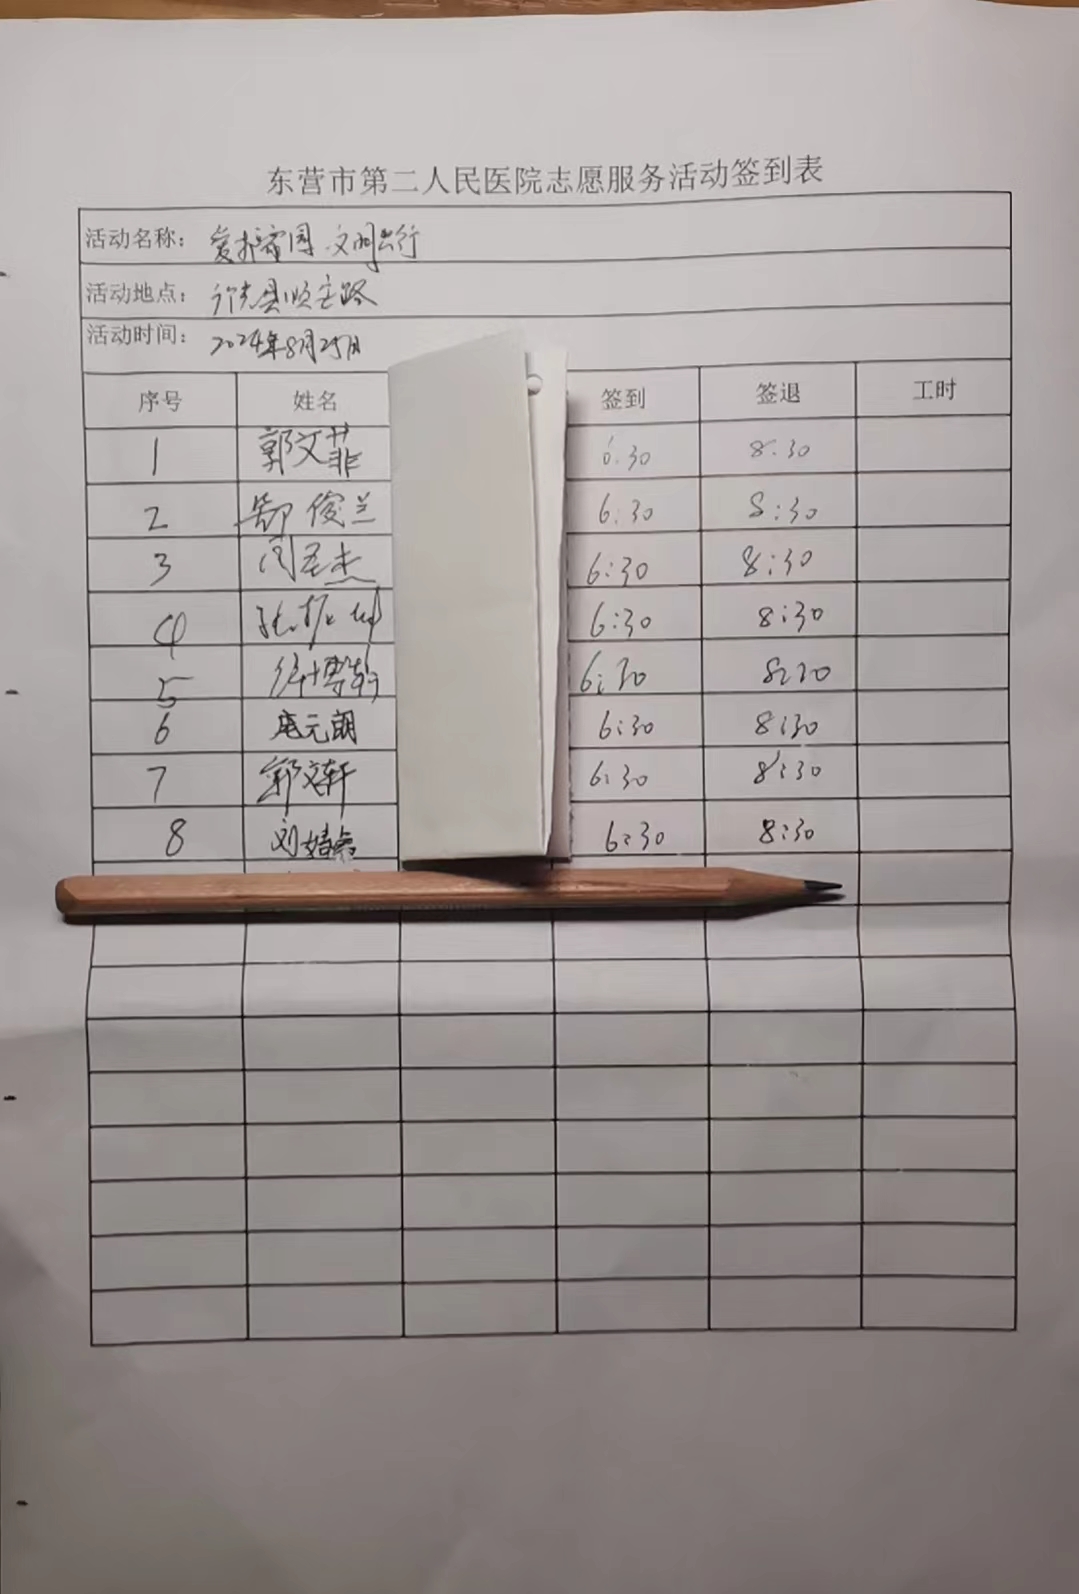 东营市第二人民医院志愿服务活动签到表
活动名称： 爱护家园 文明出行
活动地点：
活动时间： 2024年8月25日
序号 姓名 签到 签退 工时
1 郭文菲 6:30 8:30
2 郜俊兰 6:30 8:30
3 杰 6:30 8:30
4 张振 6:30 8:30
5 博翰 6:30 8:30
6 庞元朗 6:30 8:30
7 郭文轩 6:30 8:30
8 刘婧 6:30 8:30